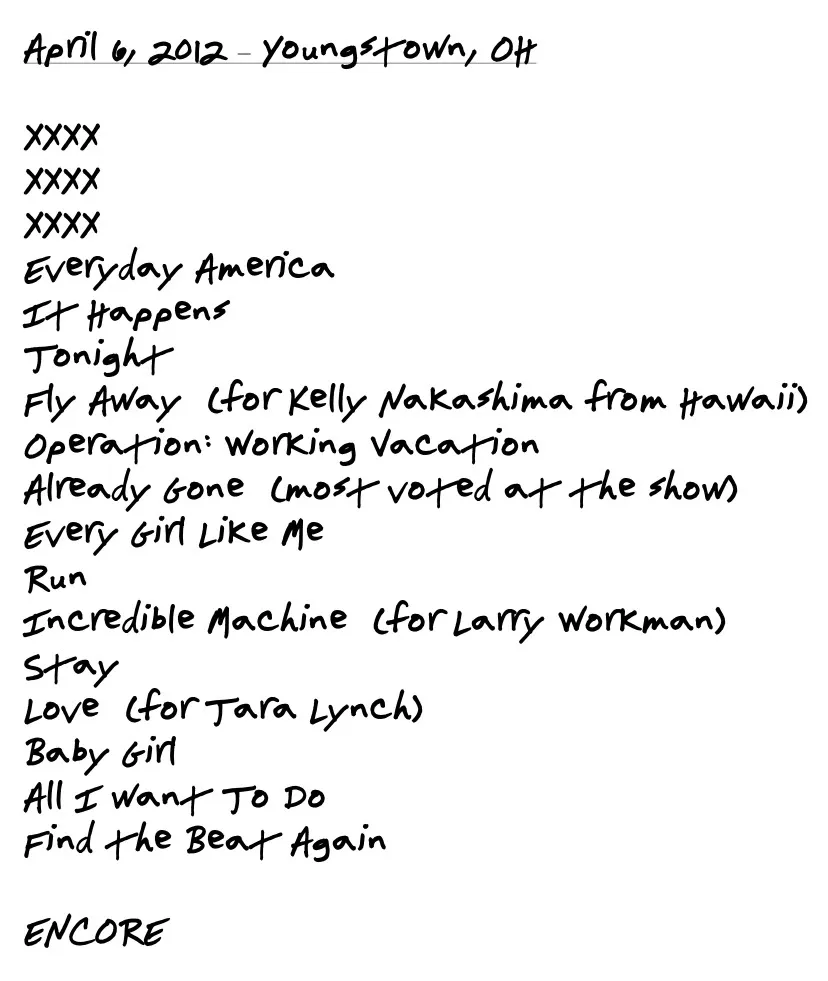 April 6, 2012 – Youngstown, OH
XXXX
XXXX
XXXX
Everyday America
It Happens
Tonight
Fly Away (for Kelly Nakashima from Hawaii)
Operation: Working Vacation
Already Gone (most voted at the show)
Every Girl Like Me
Run
Incredible Machine (for Larry Workman)
Stay
Love (for Tara Lynch)
Baby Girl
All I Want To Do
Find the Beat Again
ENCORE